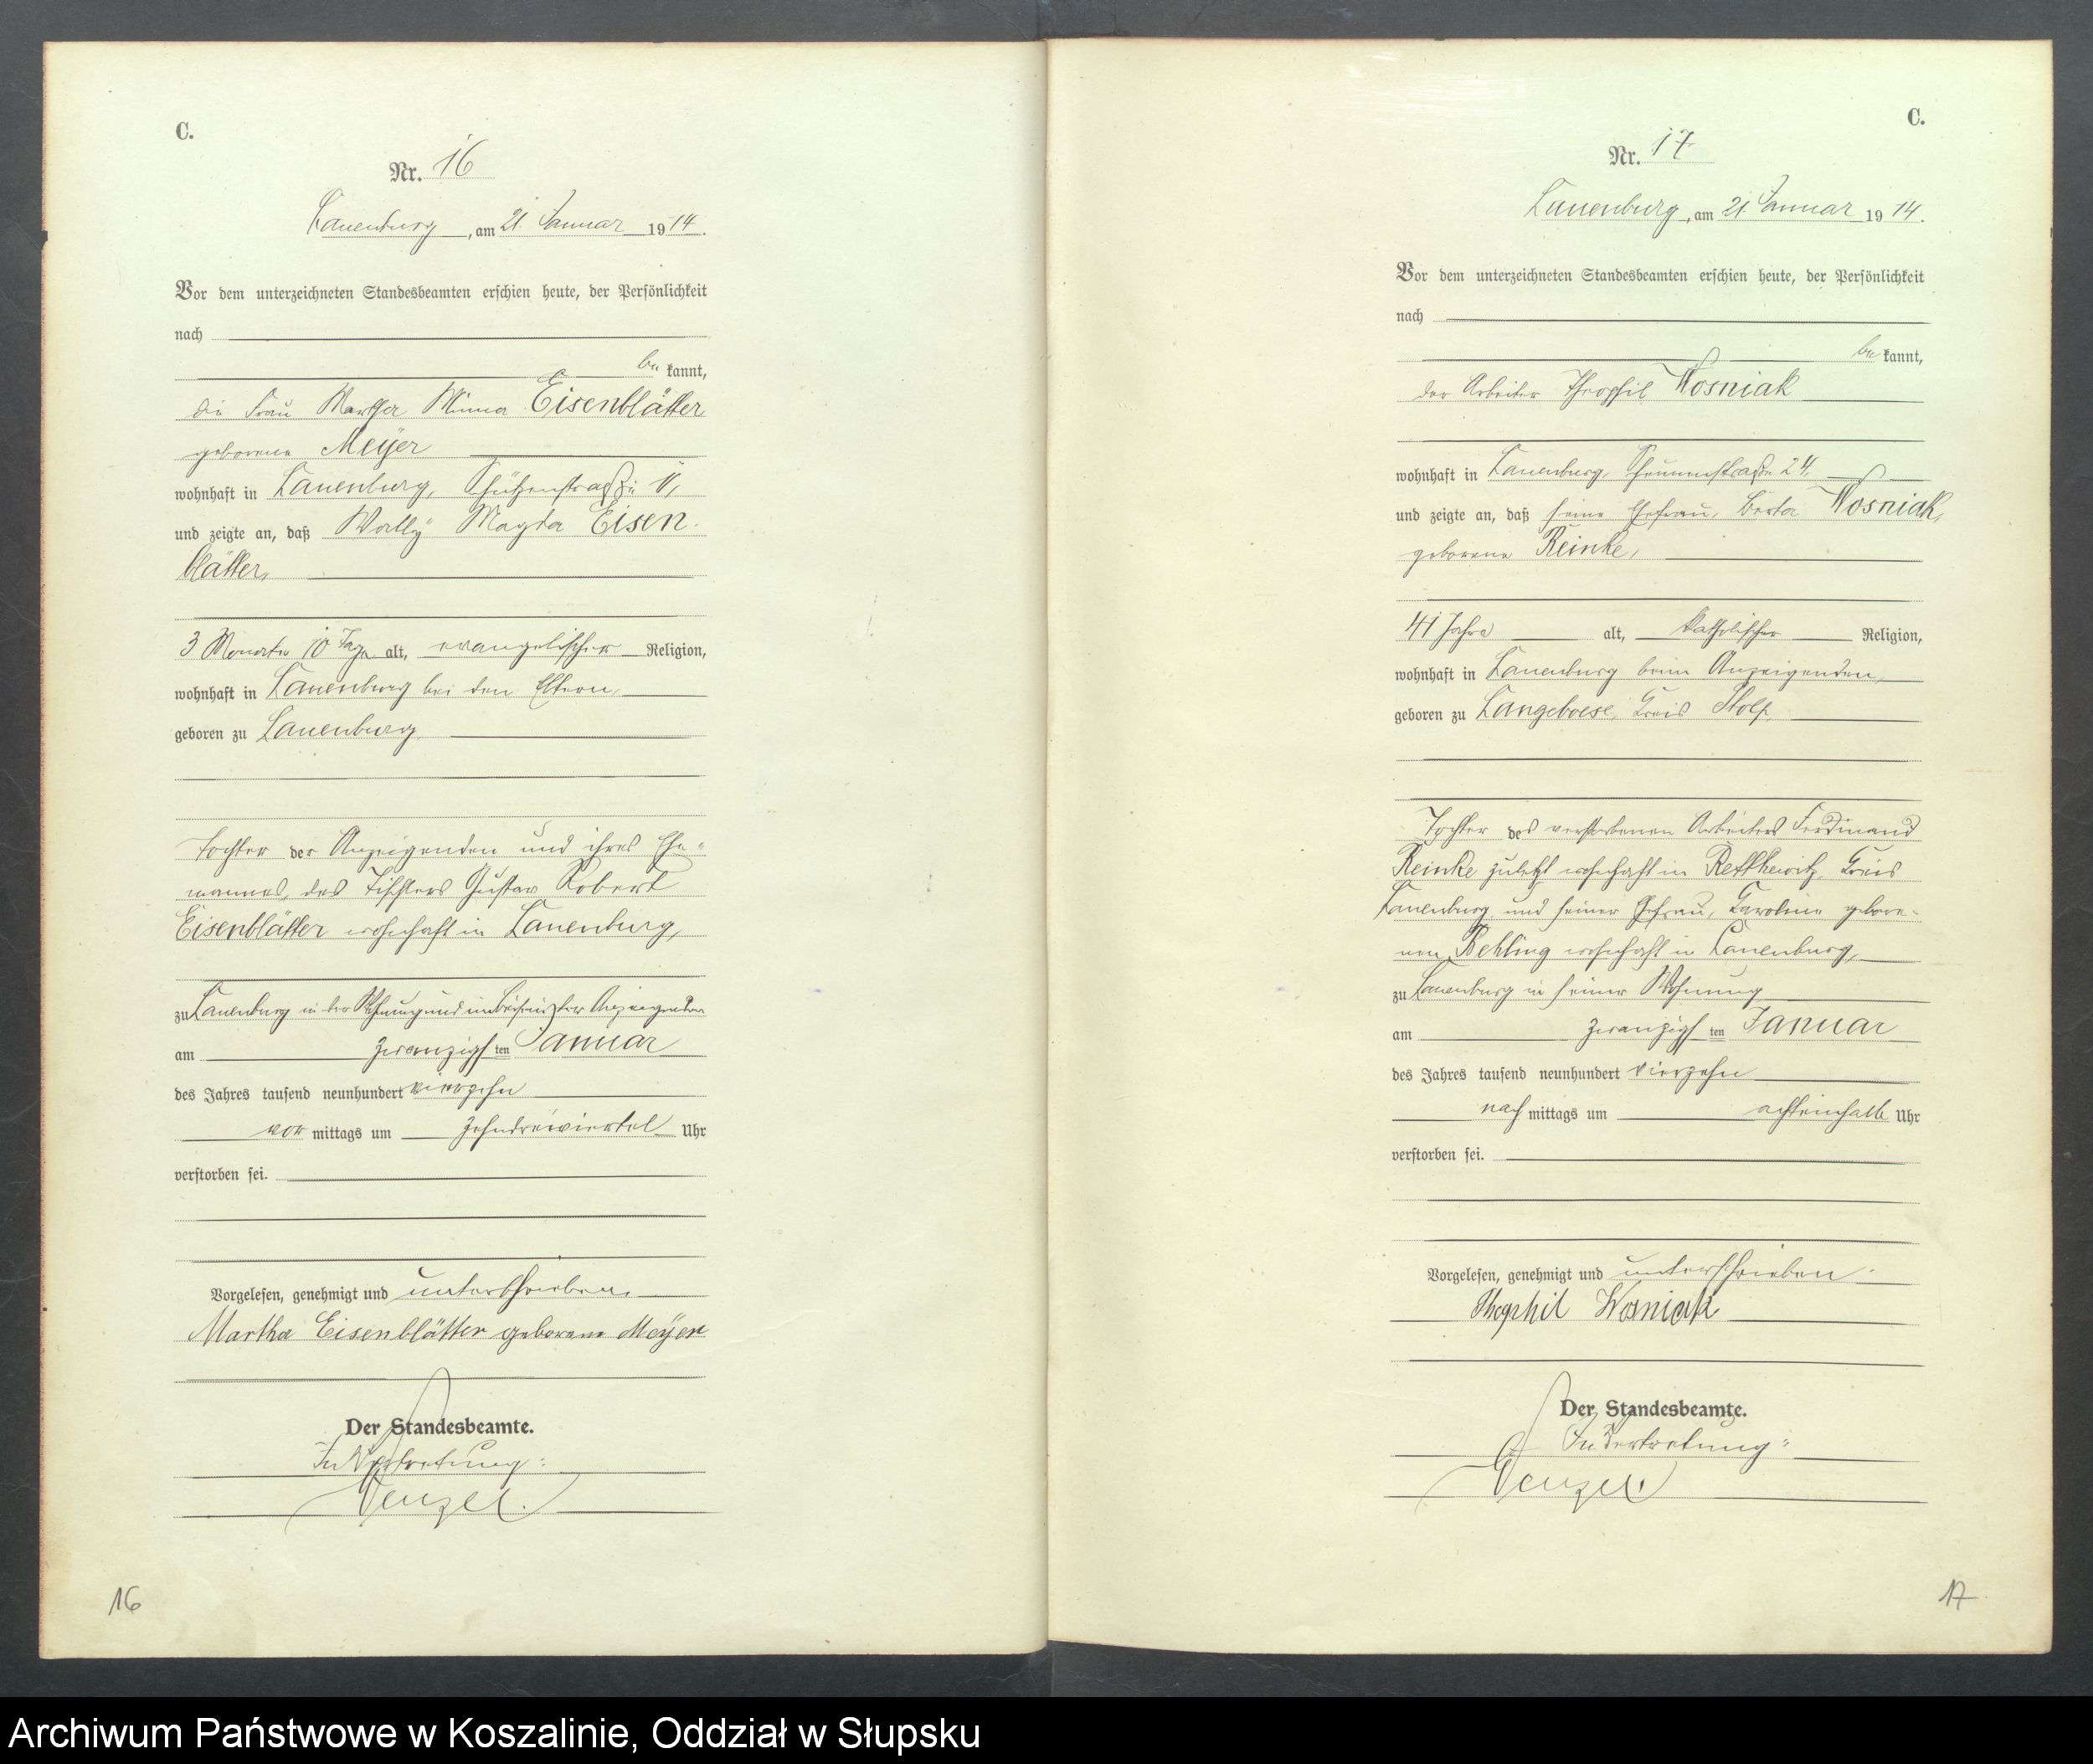 C.
Nr. 16
Lauenburg, am 21. Januar 1914.
Vor dem unterzeichneten Standesbeamten erschien heute, der Persönlichkeit
nach
bekannt,
die Frau Martha Minna Eisenblätter
geborene Meÿer
wohnhaft in Lauenburg, Schützenstraße
und zeigte an, daß Wallÿ Magda Eisen-
blätter,
3 Monate 10 Tage alt, evangelischer Religion,
wohnhaft in Lauenburg bei den Eltern,
geboren zu Lauenburg
Tochter der Anzeigenden und ihres Ehe-
mannes, des Tischlers Gustav Robert
Eisenblätter wohnhaft in Lauenburg,
zu Lauenburg in der Wohnung und im Beisein der Anzeigenden
am zwanzigsten Januar
des Jahres tausend neunhundert vierzehn
vormittags um zehndreiviertel Uhr
verstorben sei.
Vorgelesen, genehmigt und unterschrieben
Martha Eisenblätter geborene Meÿer
Der Standesbeamte.
In Vertretung:
Wenzel.
16
C.
Nr. 17
Lauenburg, am 21. Januar 1914.
Vor dem unterzeichneten Standesbeamten erschien heute, der Persönlichkeit
nach
bekannt,
der Arbeiter Theophil Wosniak
wohnhaft in Lauenburg, Scheunenstraße 24,
und zeigte an, daß seine Ehefrau, Berta Wosniak,
geborene Reinke,
41 Jahre alt, katholischer Religion,
wohnhaft in Lauenburg beim Anzeigenden,
geboren zu Langeboese, Kreis Stolp
Tochter des verstorbenen Arbeiters Ferdinand
Reinke zuletzt wohnhaft in Rettkewitz, Kreis
Lauenburg und seiner Ehefrau, Karoline gebore-
nen Rehling wohnhaft in Lauenburg,
zu Lauenburg in seiner Wohnung
am zwanzigsten Januar
des Jahres tausend neunhundert vierzehn
nachmittags um achteinhalb Uhr
verstorben sei.
Vorgelesen, genehmigt und unterschrieben
Theophil Wosniak
Der Standesbeamte.
In Vertretung:
Wenzel.
17
Archiwum Państwowe w Koszalinie, Oddział w Słupsku